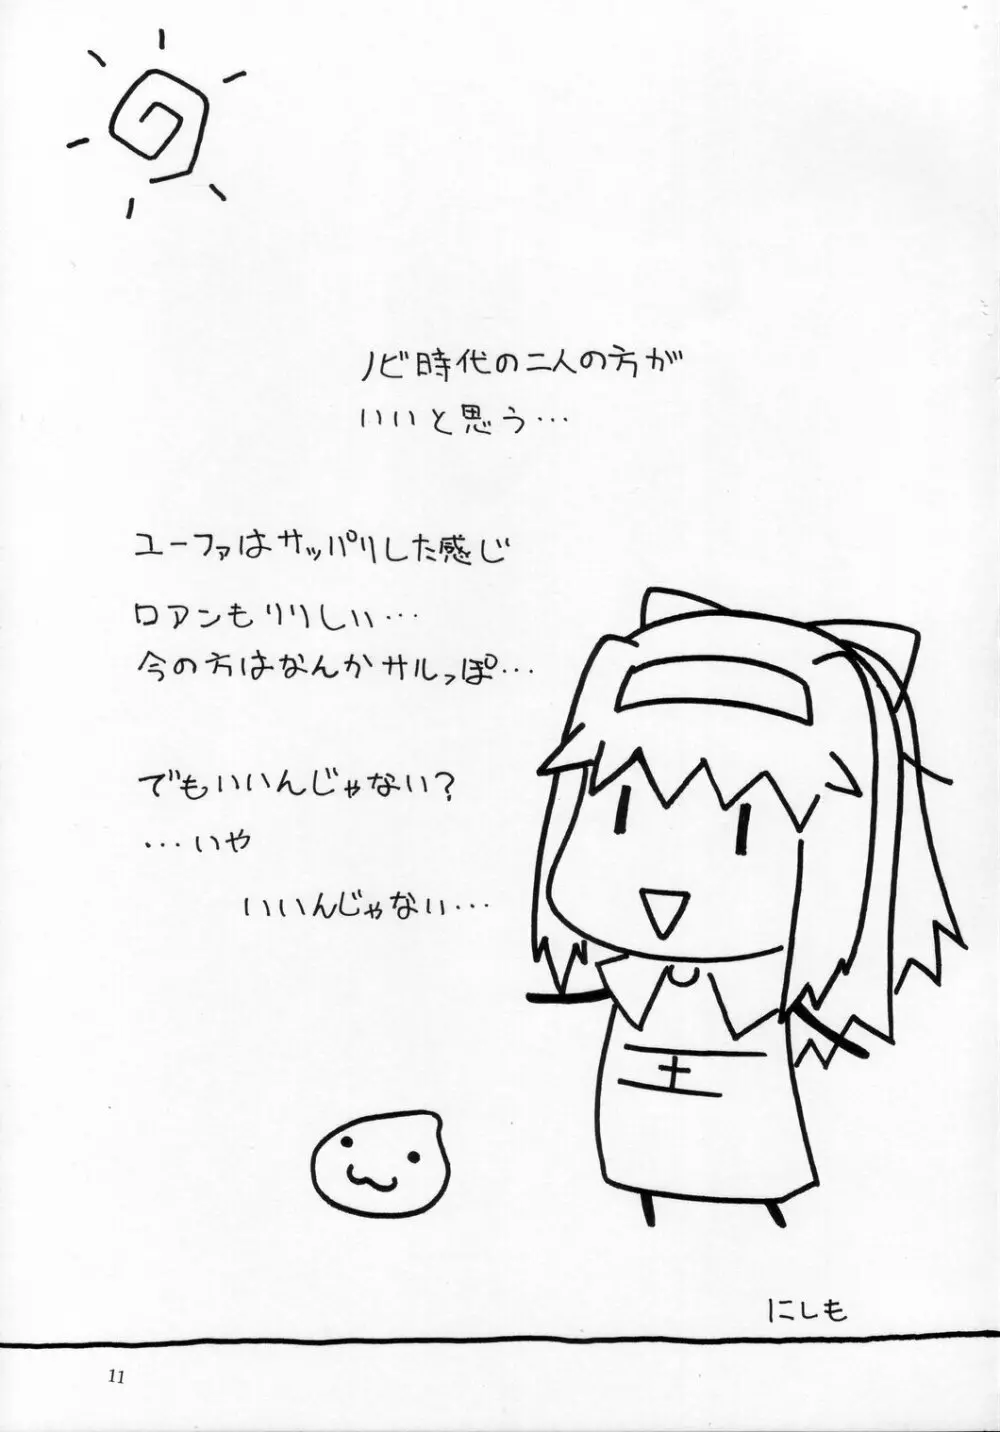 ノビ時代の二人の方が
いいと思う…
ユーファはサッパリした感じ
ロアンもりりしぃ…
今の方はなんかサルっぽ…
でもいいんじゃない?
…いや
いいんじゃなぃ…
にしも
11